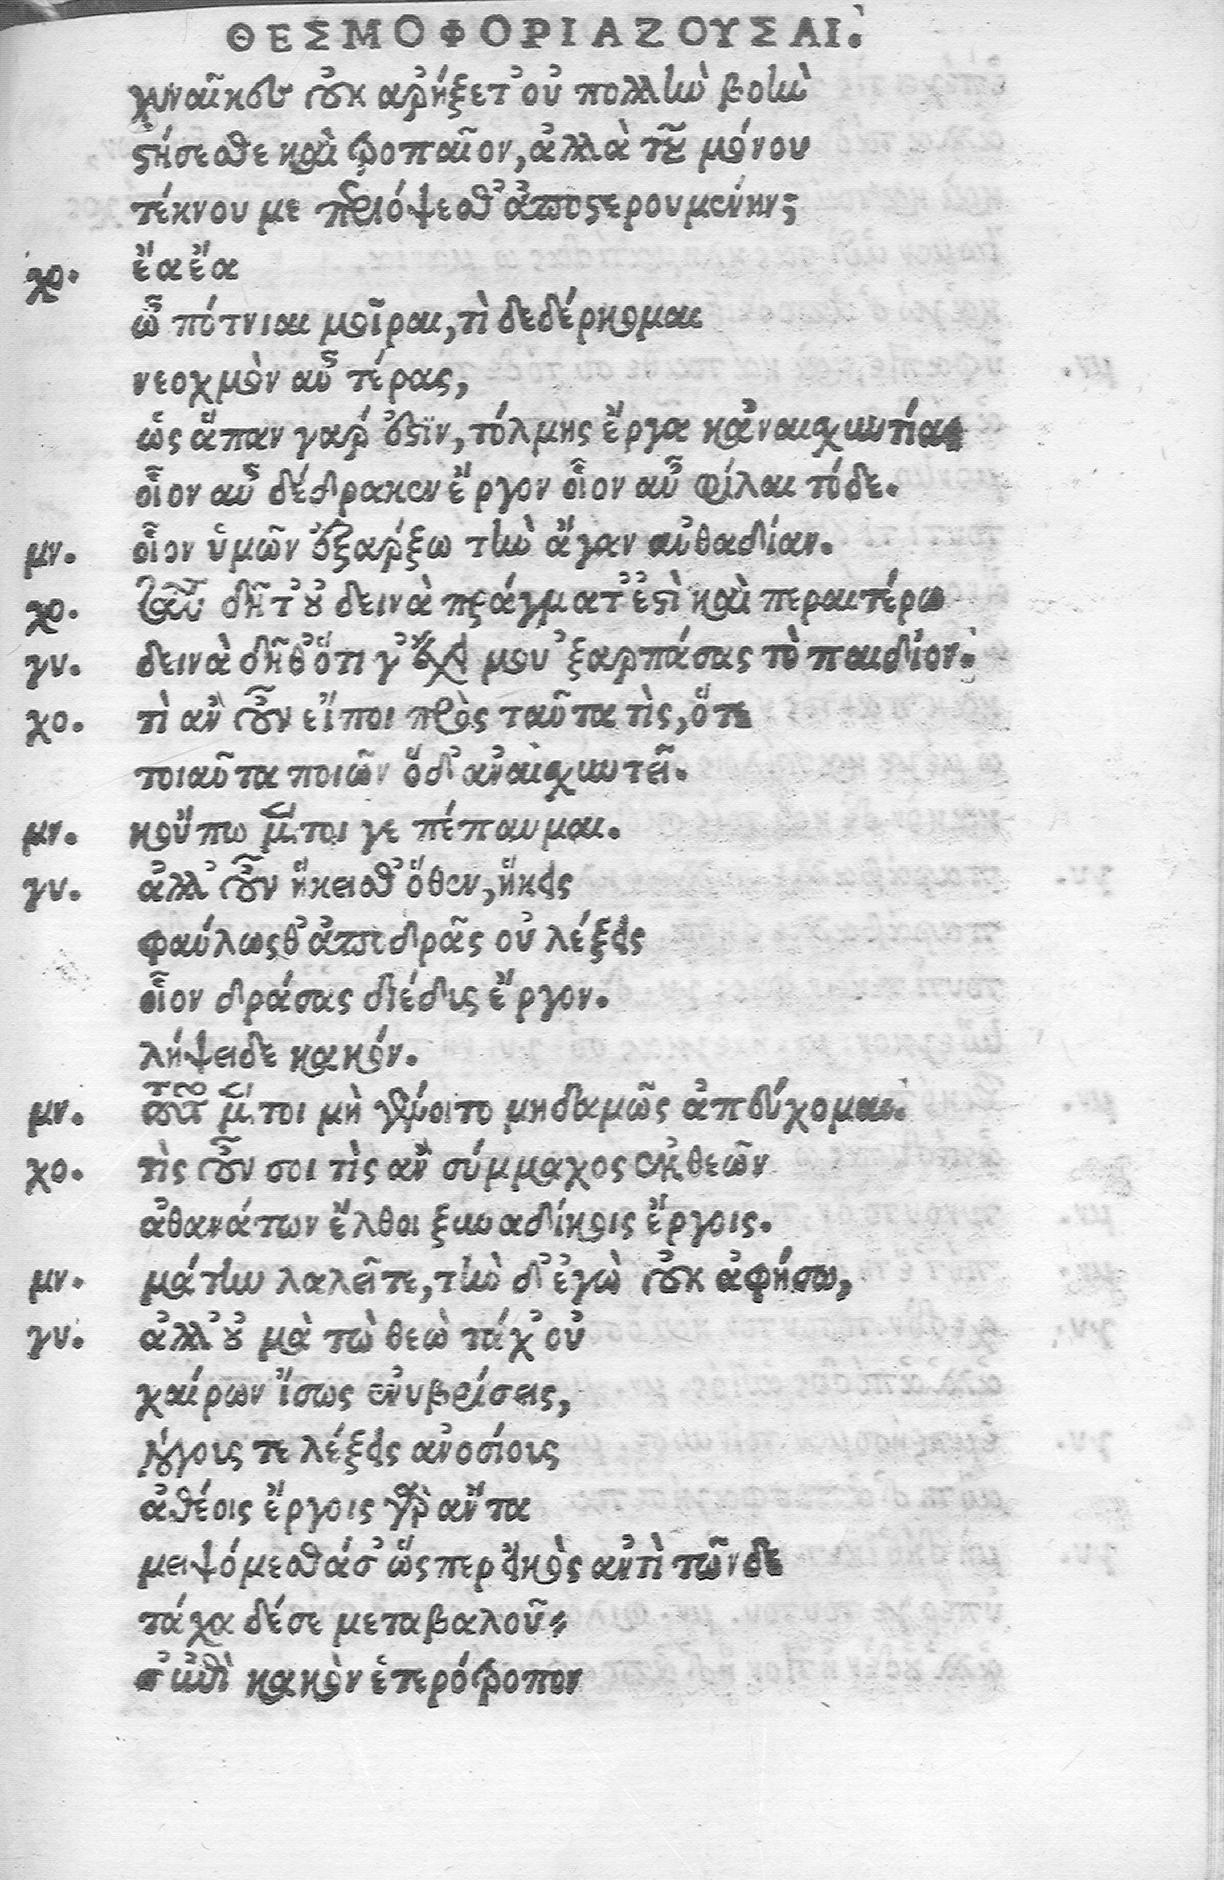 ΘΕΣΜΟΦΟΡΙΑΖΟΥΣΑΙ.
γυναῖκες οὐκ ἀρήξετ' οὐ πολλὴν βοὴν
στήσεσθε καὶ τροπαῖον, ἀλλὰ τοῦ μόνου
τέκνου με περιόψεσθ' ἀποστερουμένην;
χο. ἔα ἔα
ὦ πότνιαι μοῖραι, τὶ δεδέρκομαι
νεοχμὸν αὖ τέρας,
ὡς ἅπαν γαρ ἐστὶν, τόλμης ἔργα κἀναισχυντίας
οἷον αὖ δέδρακεν ἔργον οἷον αὖ φίλαι τόδε.
μν. οἷον ὑμῶν ἐξαράξω τὴν ἄγαν αὐθαδίαν.
χο. ταῦτα δῆτ' οὐ δεινὰ πράγματ' ἐστὶ καὶ περαιτέρω
γυ. δεινὰ δῆθ' ὅτι γ' ἔχει μου 'ξαρπάσας τὸ παιδίον.
χο. τὶ ἂν οὖν εἴποι πρὸς ταῦτα τὶς, ὅτε
τοιαῦτα ποιῶν ὅδ' ἀναισχυντεῖ.
μν. κοὔπω μέντοι γε πέπαυμαι.
γυ. ἀλλ' οὖν ἥκεισθ' ὅθεν, ἥκεις
φαύλως θ' ἀποδρᾶς οὐ λέξεις
οἷον δράσας διέδυς ἔργον.
λήψει δε κακόν.
μν. τοῦτο μέντοι μὴ γένοιτο μηδαμῶς ἀπεύχομαι.
χο. τὶς οὖν σοι τὶς ἂν σύμμαχος ἐκ θεῶν
ἀθανάτων ἔλθοι ξυν ἀδίκοις ἔργοις.
μν. μάτην λαλεῖτε, τὴν δ' ἐγὼ οὐκ ἀφήσω,
γυ. ἀλλ' οὐ μὰ τὼ θεὼ τάχ' οὐ
χαίρων ἴσως ἐνυβρίσεις,
λόγους τε λέξεις ἀνοσίους
ἀθέοις ἔργοις γὰρ ἄντα
μειψόμεσθά σ' ὥσπερ εἰκὸς ἀντὶ τῶνδε
τάχα δέ σε μεταβαλοῦς'
ἐπὶ κακὸν ἑτερότροπον